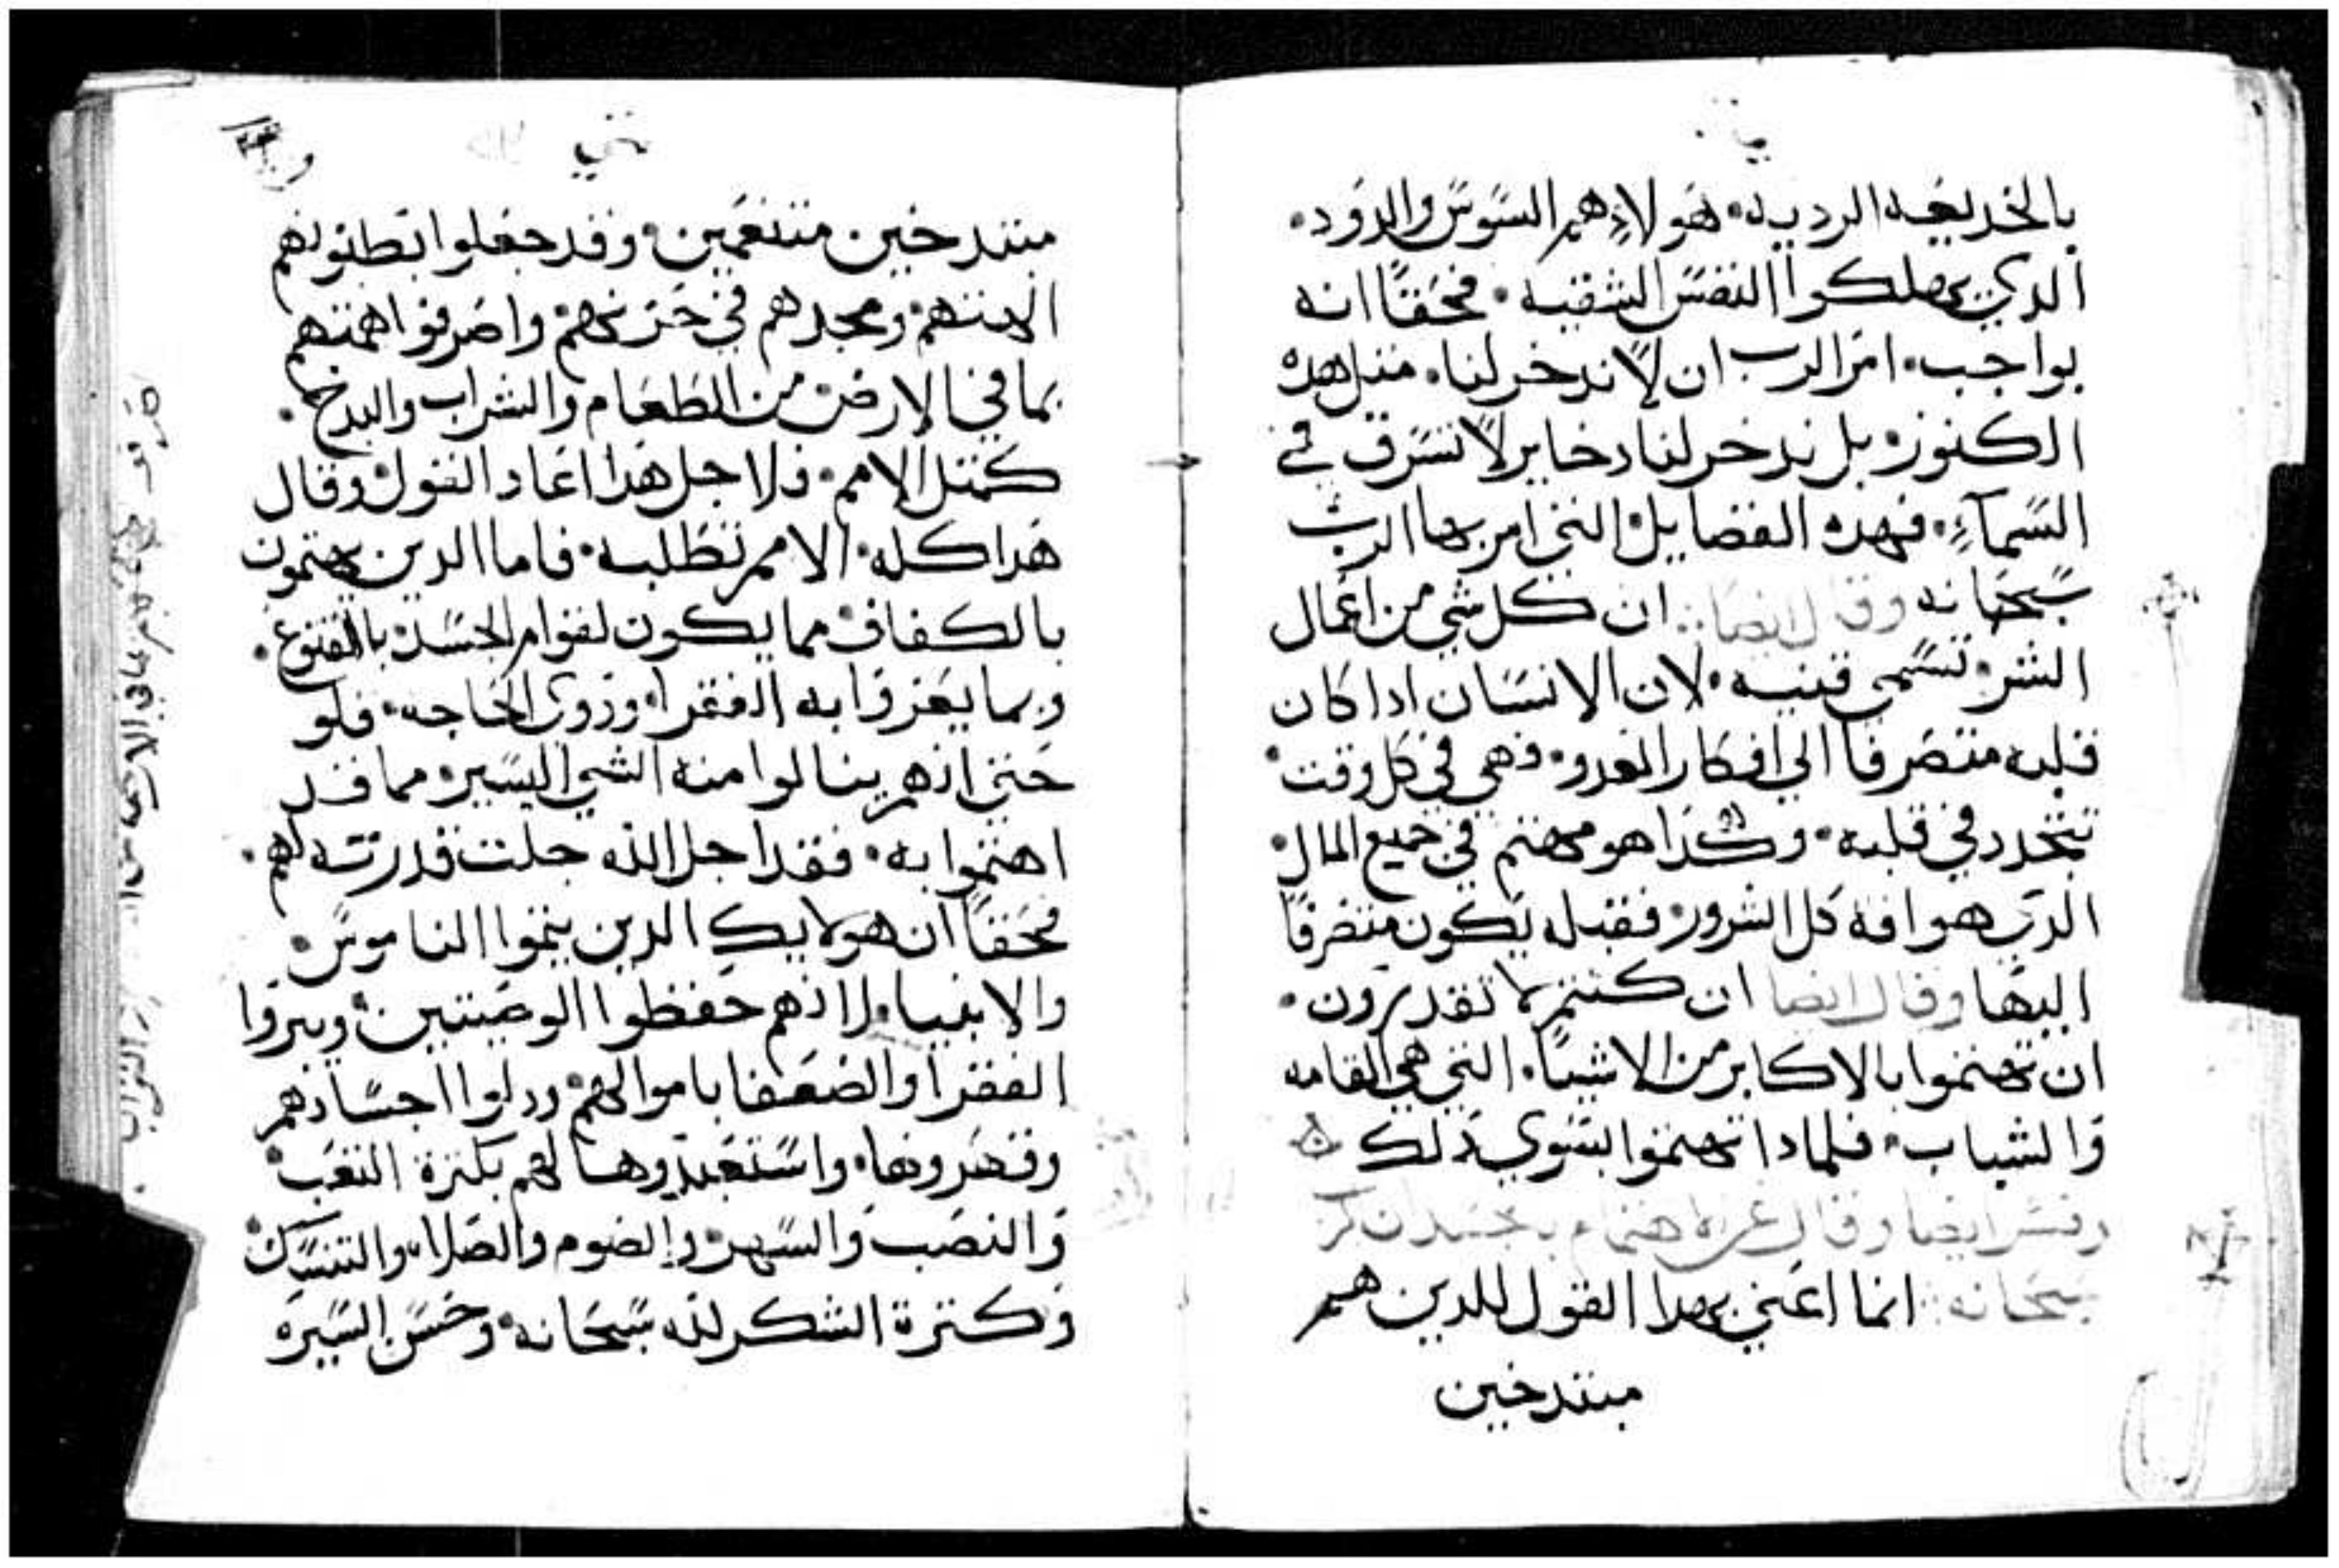 بالخديعه الرديه. هولاءِ هم السوس والدود.
الدي يهلكوا النفس الشقيه. فحقًا انه
بواجب. امر الرب ان لا ندخر لنا. متل هده
الكنوز. بل ندخر لنا دخاير لا تسرق في
السمآءِ. فهده الفضايل التي امر بها الرب
سبحانه وقال ايضا: ان كل شي من اعمال
الشر. تسمي قنيه. لان الانسان ادا كان
قلبه متصرفا الي افكار العدو. فهي في كل وقت
تتجدد في قلبه. وكدا هو مهتم في جميع المال.
الدي هو افة كل الشرور. فقبله يكون متصرفًا
اليها وقال ايضا ان كنتم لا تقدرون.
ان تهتموا بالاكابر من الاشيآ. التي هي القامه
والشباب. فلمادا تهتموا بسوي دلك
وفسر ايضا وقال عن الاهتمام
سبحانه: انما اعني بهدا القول للدين هم
متدخين
متني
متدخين متنعمين. وقد جعلوا بطونهم
الاهتهم. ومجدهم في خزيهم. واصرفوا همتهم
بما في الارض من الطعام والشراب والبدخ.
كمتل الامم. فلاجل هدا اعاد القول وقال
هدا كله. الامم تطلبه. فاما الدين يهتمون
بالكفاف. مما يكون لقوام الجسد. بالقنوع.
وبما يعزوا به الفقرا. ودوي الحاجه. فلو
حتي انهم ينالوا منه الشي اليسير. مما قد
اهتموا به. فقد اجل الله جلت قدرته لهم.
فحقًا ان هولايك الدين يتموا الناموس.
والانبيا. لانهم حفظوا الوصيتين. وبروا
الفقرا والضعفا باموالهم. ودلوا اجسادهم
وقهروها. واستعبدوها لهم بكترة التعب.
والنصب والسهر. والصوم والصلاه والتنسك.
وكترة الشكر لله سبحانه. وحسن السيره